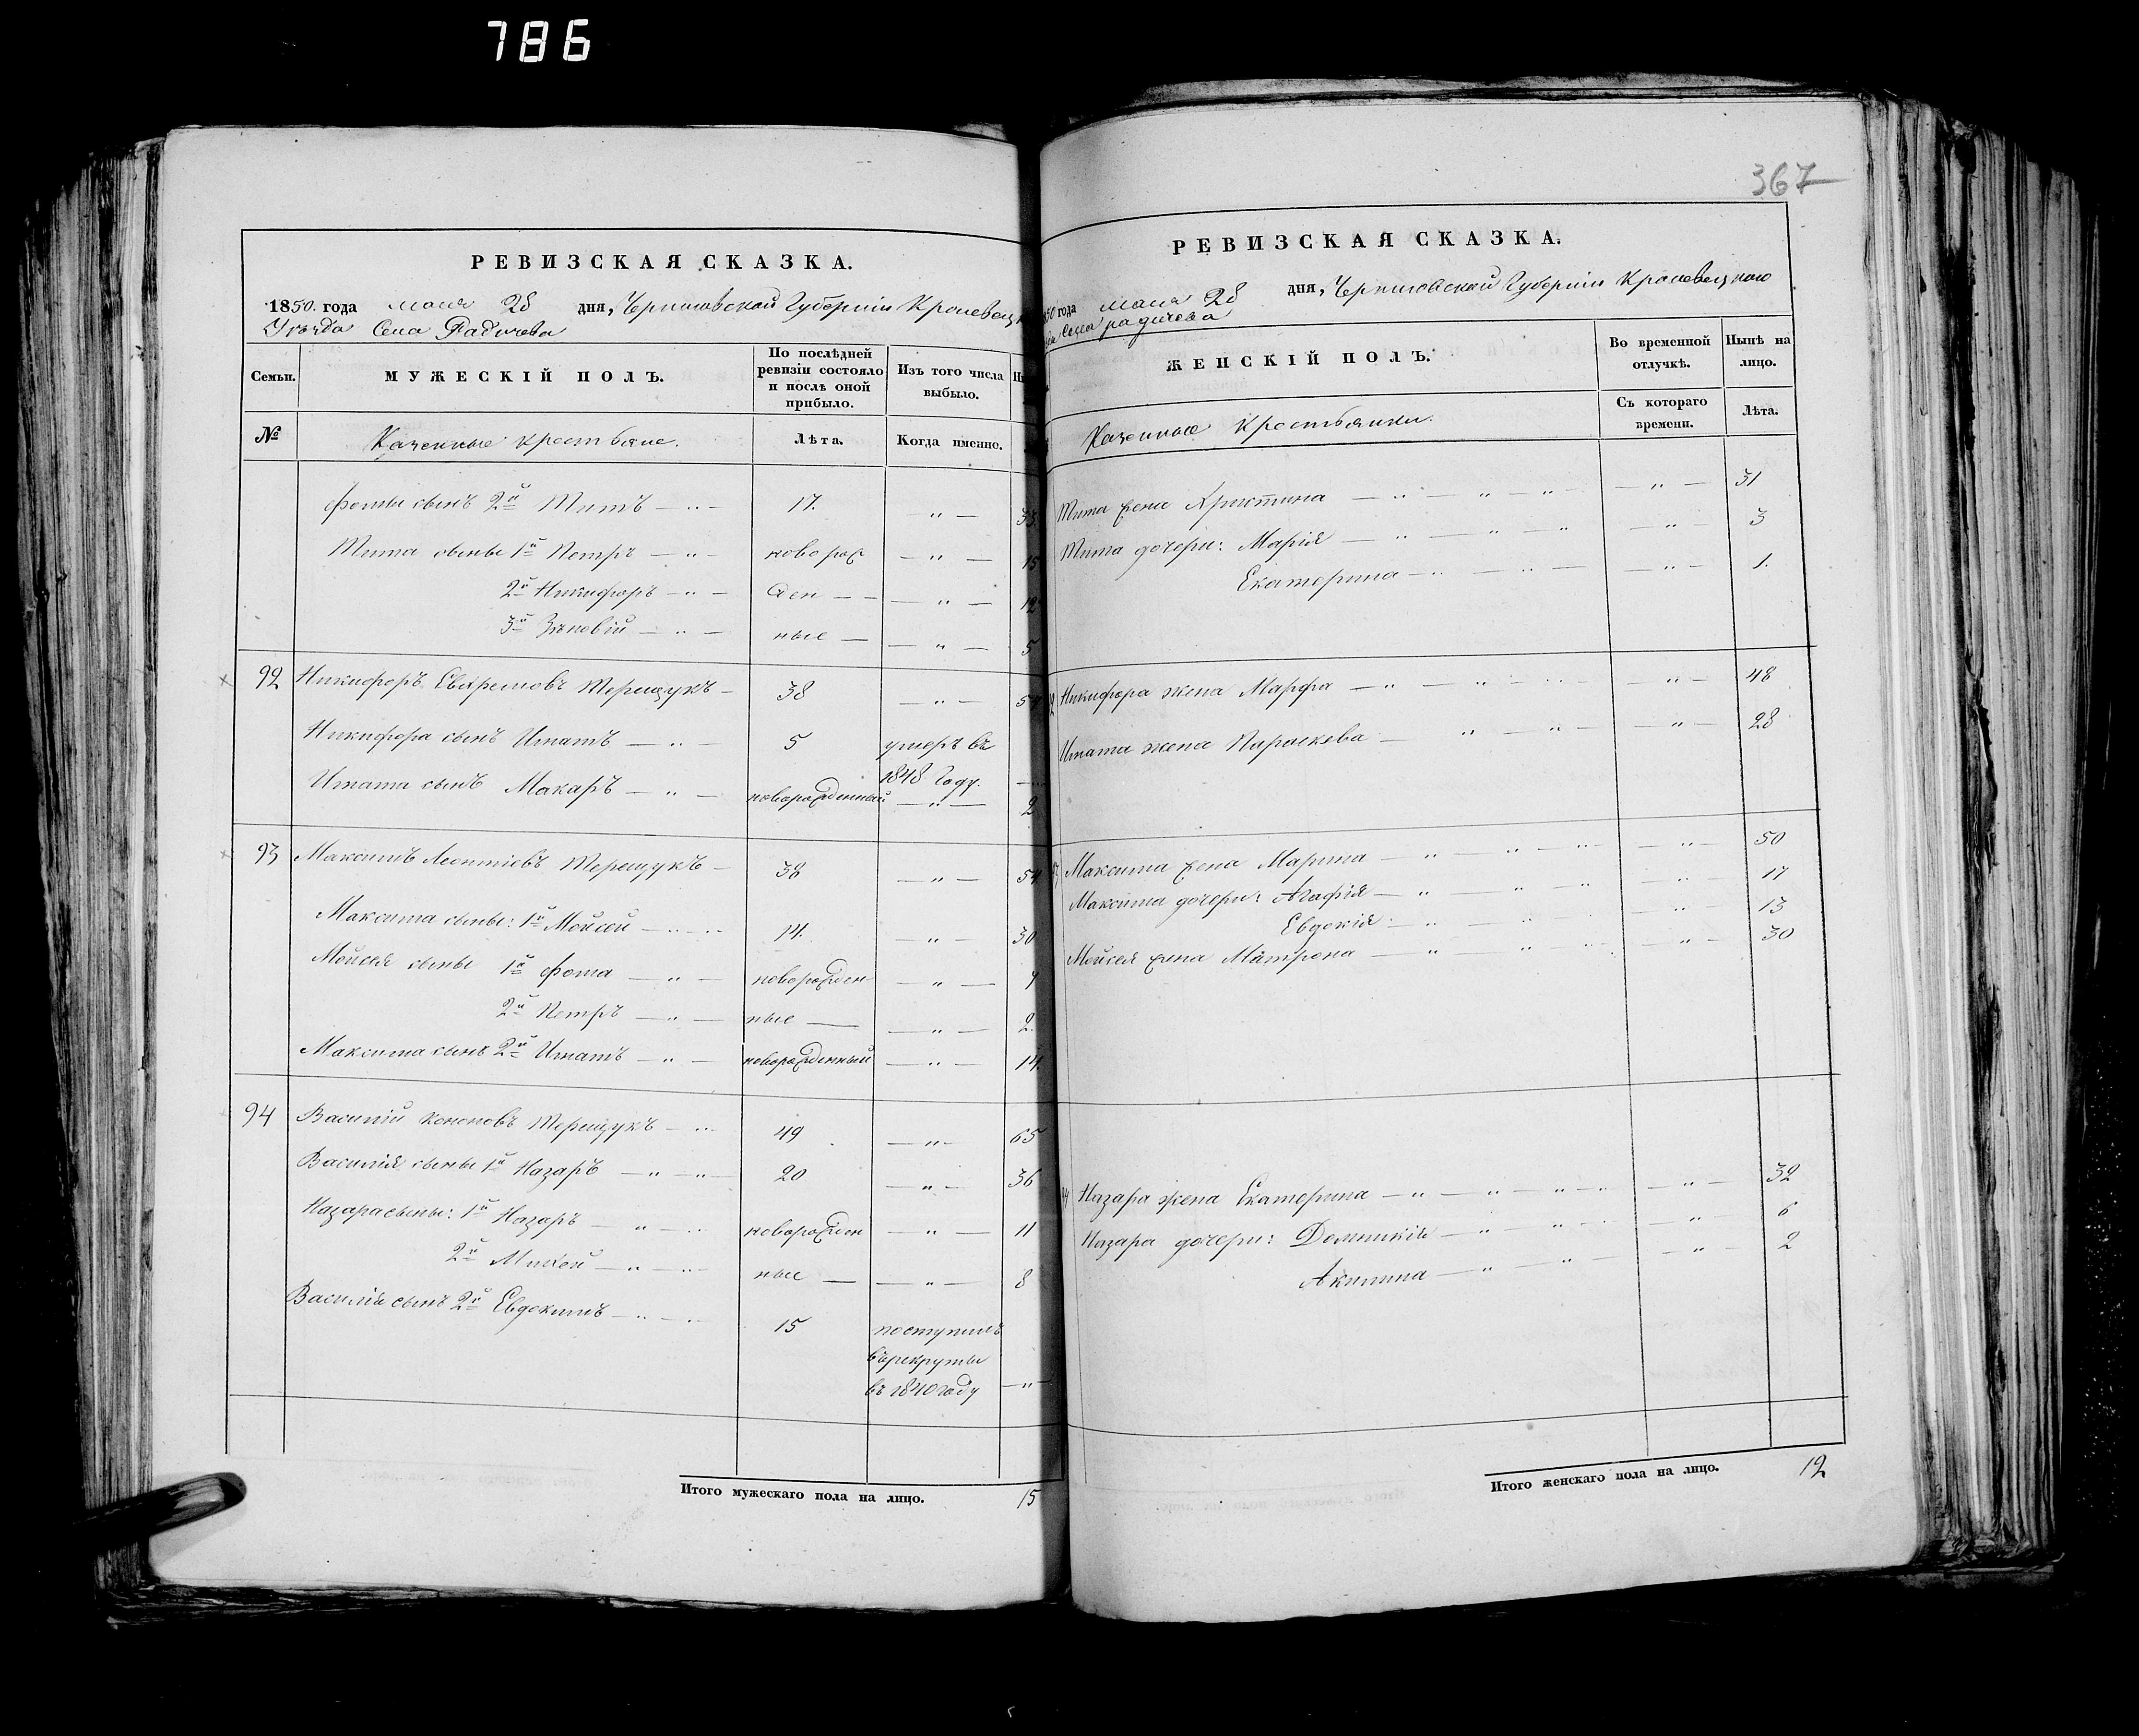 786
РЕВИЗСКАЯ СКАЗКА.
1850. года маія 28 дня, Черниговской Губерніи Кролевец
Уѣзда Села Радичева
Семьи.
МУЖЕСКІЙ ПОЛЪ.
По послѣдней ревизіи состояло и послѣ оной прибыло.
Изъ того числа выбыло.
№
Казенные крестьяне.
Лѣта.
Когда именно.
Фомы сынъ 2й Титъ — „ — 17. — „ — 33
Тита сыны 1й Петръ — „ — новорож — „ — 15
2й Никифоръ — „ — ден — — — „ — 12
3й Зѣновій — „ — ные — — „ — 5
92 Никифоръ Евхремовъ Терещукъ — 38 — „ — 54
Никифора сынъ Игнатъ — „ — 5 умеръ въ
1848 году.
Игната сынъ Макаръ — „ — новорожденный — „ — 2
93 Максимъ Леонтіевъ Терещукъ — 38 — „ — 54
Максима сыны: 1й Мойсей — „ — 14. — „ — 30
Мойсея сыны 1й Фома — „ — новорожден — „ — 7
2й Петръ — „ — ные — — „ — 2.
Максима сынъ 2й Игнатъ — „ — новорожденный — „ — 14.
94 Василій Кононовъ Терещукъ — „ 49 — „ — 65
Василія сыны 1й Назаръ — „ — „ — 20 — „ — 36
Назара сыны: 1й Назаръ — „ — новорожден — „ — 11
2й Михей — „ — „ ные — — „ — 8
Василія сынъ 2й Евдокимъ — „ — 15 поступилъ
въ рекруты
въ 1840 году — „ —
Итого мужескаго пола на лицо. 15
367
РЕВИЗСКАЯ СКАЗКА.
года маія 28 дня, Черниговской Губерніи Кролевецкаго
Села Радичева
ЖЕНСКІЙ ПОЛЪ.
Во временной отлучкѣ.
Нынѣ на лицо.
Казенные Крестьянки.
Съ котораго времени.
Лѣта.
Тита жена Христина — „ — „ — „ — — „ — 31
Тита дочери: Марія — „ — „ — „ — „ — 3
Екатерина — „ — „ — — „ — 1.
Никифора жена Марфа — „ — „ — „ — — „ — 48
Игната жена Параскева — „ — „ — — „ — 28
Максима жена Марина — „ — „ — „ — — „ — 50
Максима дочери: Агафія — „ — „ — „ — „ — 17
Евдокія — „ — „ — „ — 13
Мойсея жена Матрона — „ — „ — — „ — 30
Назара жена Екатерина — „ — „ — „ — „ — „ — 32
Назара дочери: Домникія — „ — „ — „ — „ — 6
Акилина — „ — „ — „ — 2
Итого женскаго пола на лицо. 12